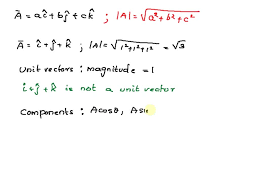 Ā = aî + bĵ + ck̂ ; |A| = √(a² + b² + c²)
Ā = î + ĵ + k̂ ; |A| = √(1² + 1² + 1²) = √3
Unit vectors : magnitude = 1
î + ĵ + k̂ is not a unit vector
Components : Acosθ, Asi